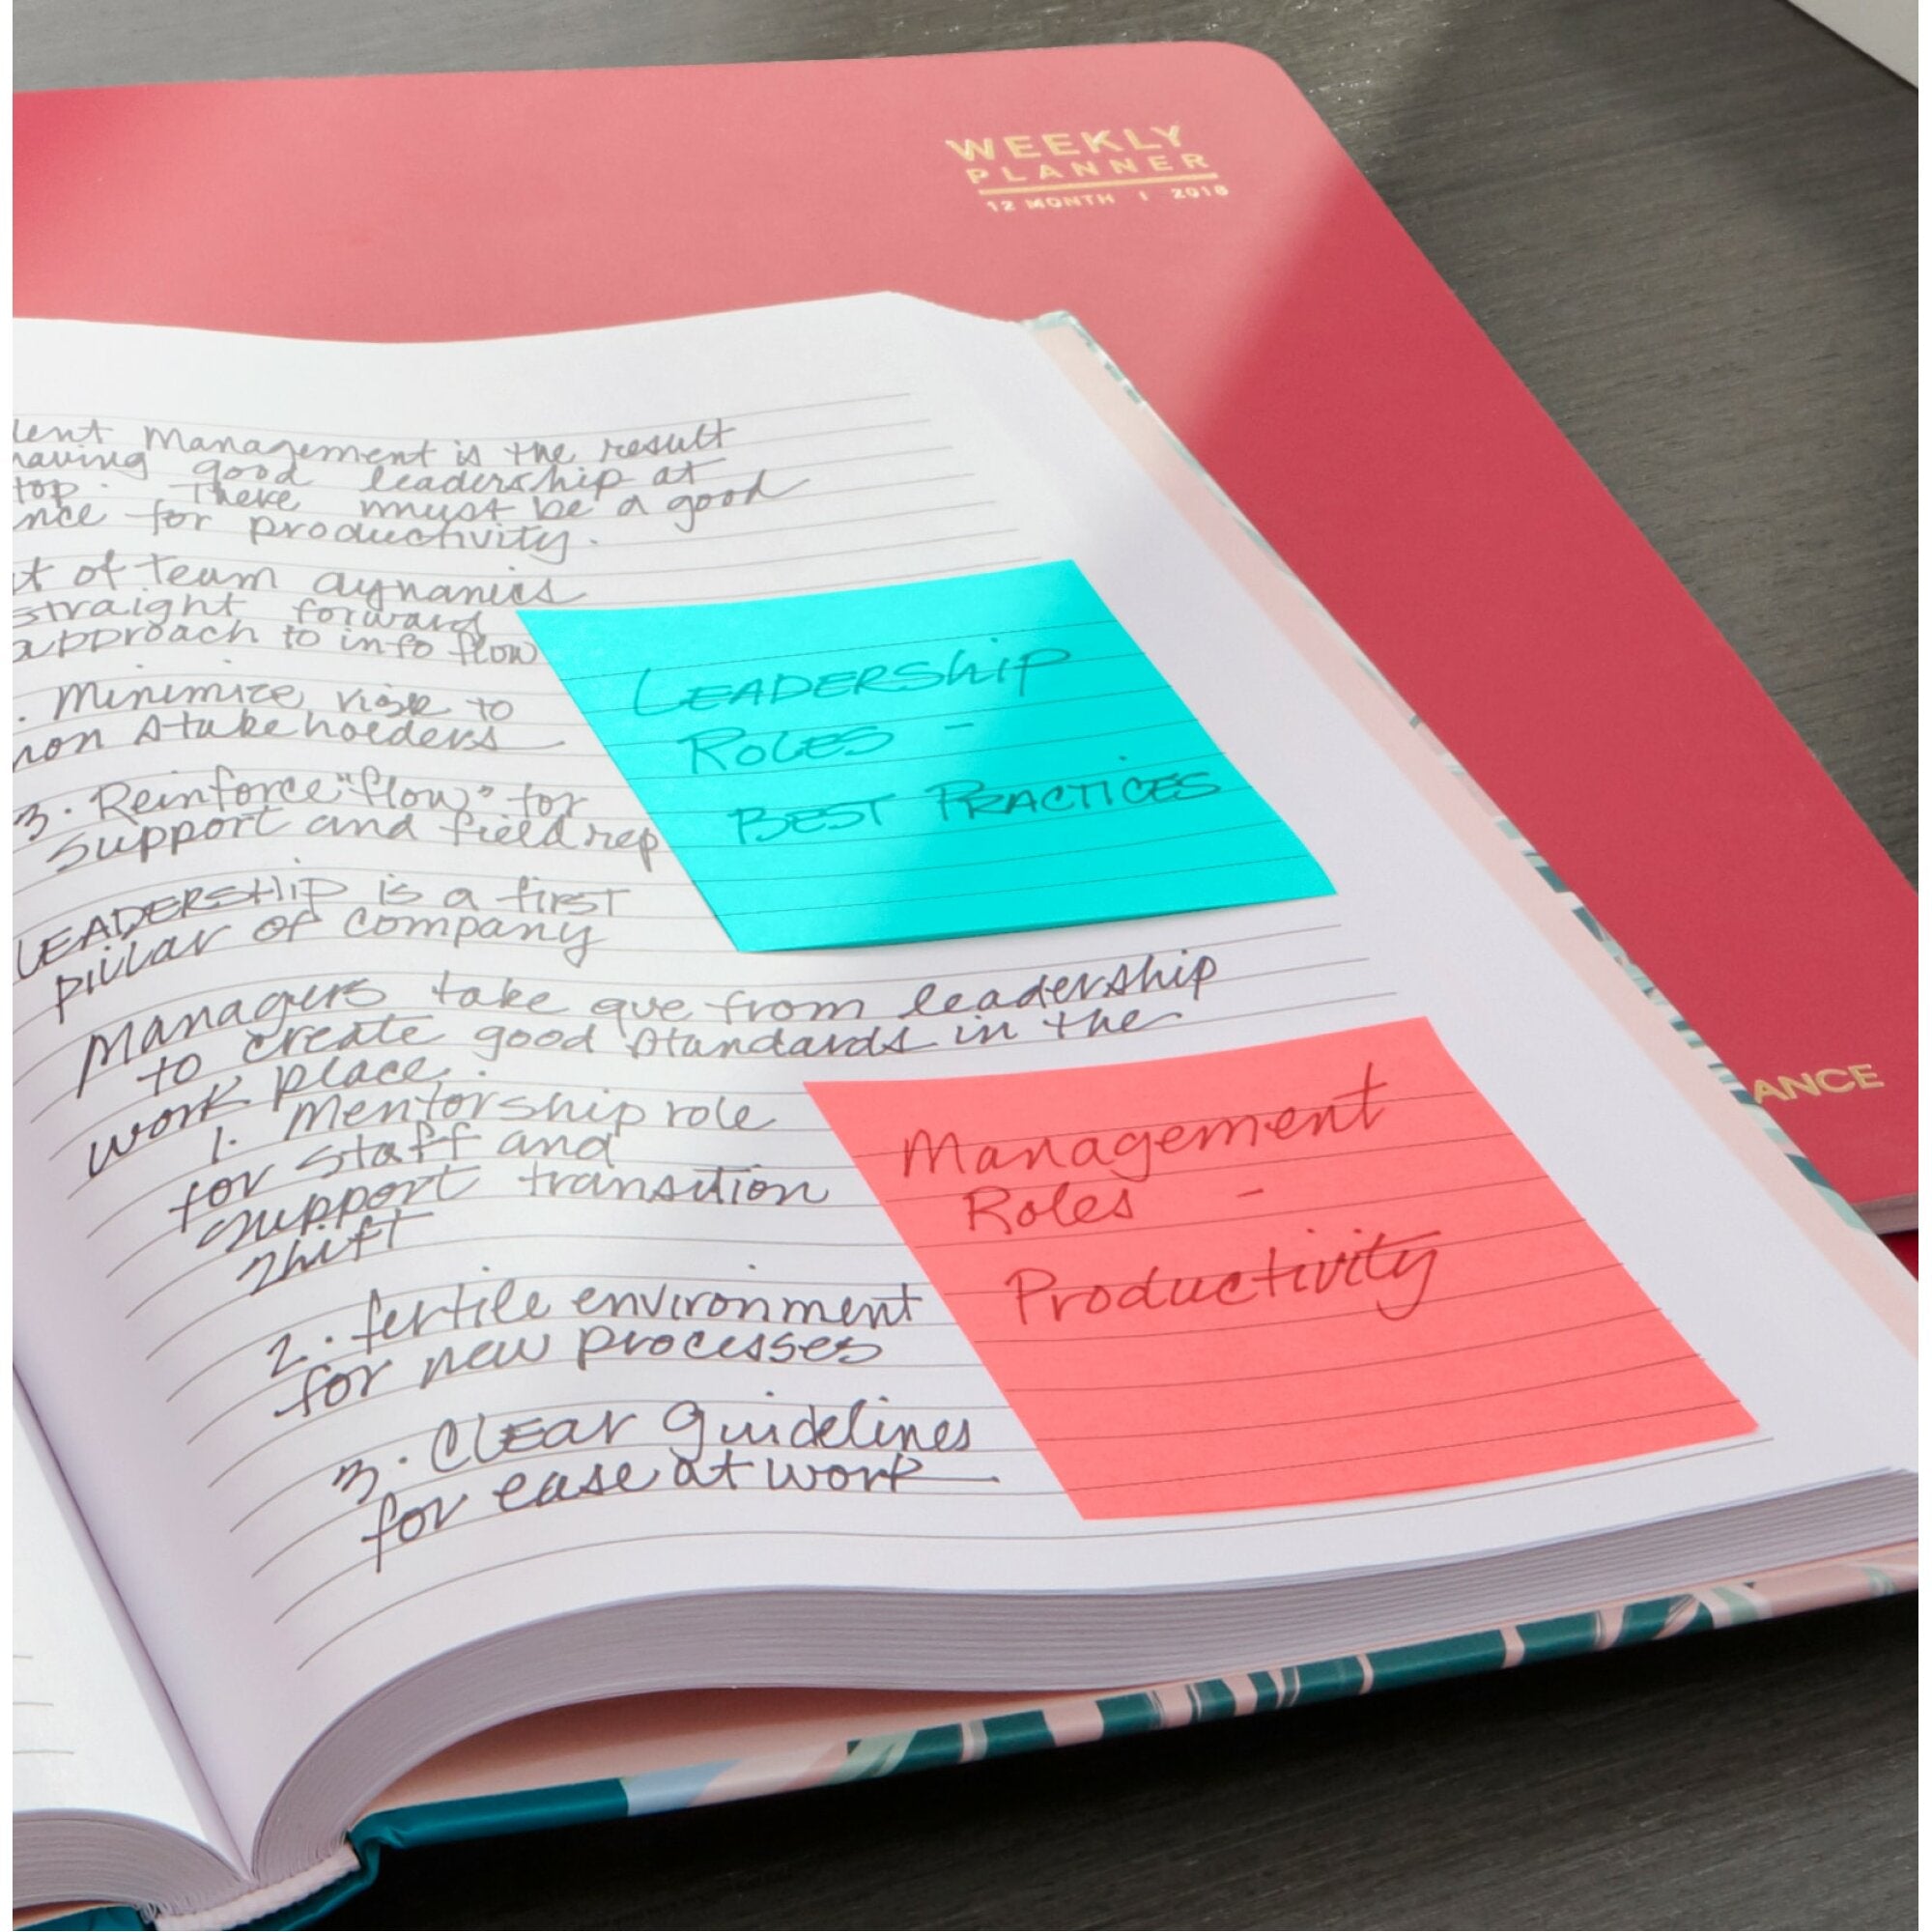 WEEKLY
PLANNER
12 MONTH | 2018
lent Management is the result
having good leadership at
top. There must be a good
nce for productivity.
t of team dynamics
straight forward
approach to info flow
. Minimize risk to
non stakeholders
3. Reinforce "flow" for
support and field rep
LEADERSHIP is a first
pillar of company
LEADERShip
ROLES -
BEST PRACTICES
Managers take que from leadership
to create good standards in the
work place.
1. Mentorship role
for staff and
support transition
shift
2. fertile environment
for new processes
3. Clear guidelines
for ease at work
Management
Roles -
Productivity
ANCE